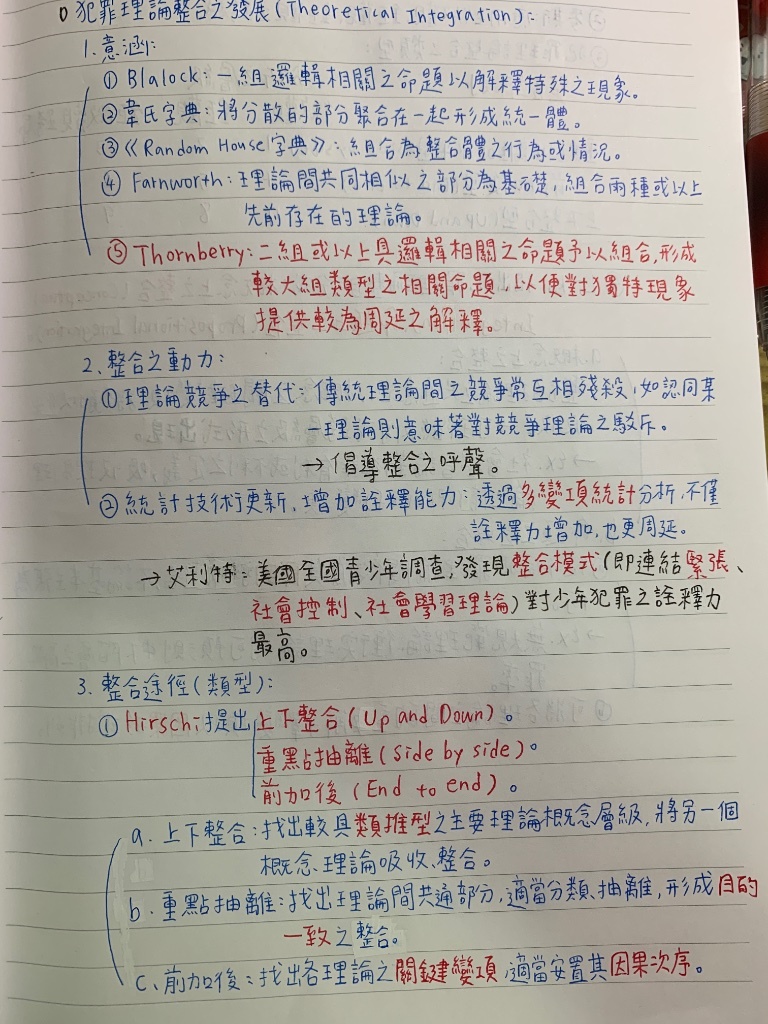 犯罪理論整合之發展(Theoretical Integration):
1.意涵:
① Blalock:一組邏輯相關之命題以解釋特殊之現象。
②韋氏字典:將分散的部分聚合在一起形成統一體。
③《Random House字典》:組合為整合體之行為或情況。
④ Farnworth:理論間共同相似之部分為基礎,組合兩種或以上
先前存在的理論。
⑤ Thornberry:二組或以上具邏輯相關之命題予以組合,形成
較大組類型之相關命題,以便對獨特現象
提供較為周延之解釋。
2.整合之動力:
①理論競爭之替代:傳統理論間之競爭常互相殘殺,如認同某
一理論則意味著對競爭理論之駁斥。
→倡導整合之呼聲。
②統計技術更新,增加詮釋能力:透過多變項統計分析,不僅
詮釋力增加,也更周延。
→艾利特:美國全國青少年調查,發現整合模式(即連結緊張、
社會控制、社會學習理論)對少年犯罪之詮釋力
最高。
3.整合途徑(類型):
① Hirschi提出上下整合(Up and Down)。
重點抽離(Side by side)。
前加後(End to end)。
a.上下整合:找出較具類推型之主要理論概念層級,將另一個
概念、理論吸收、整合。
b.重點抽離:找出理論間共通部分,適當分類、抽離,形成目的
一致之整合。
c.前加後:找出各理論之關鍵變項,適當安置其因果次序。